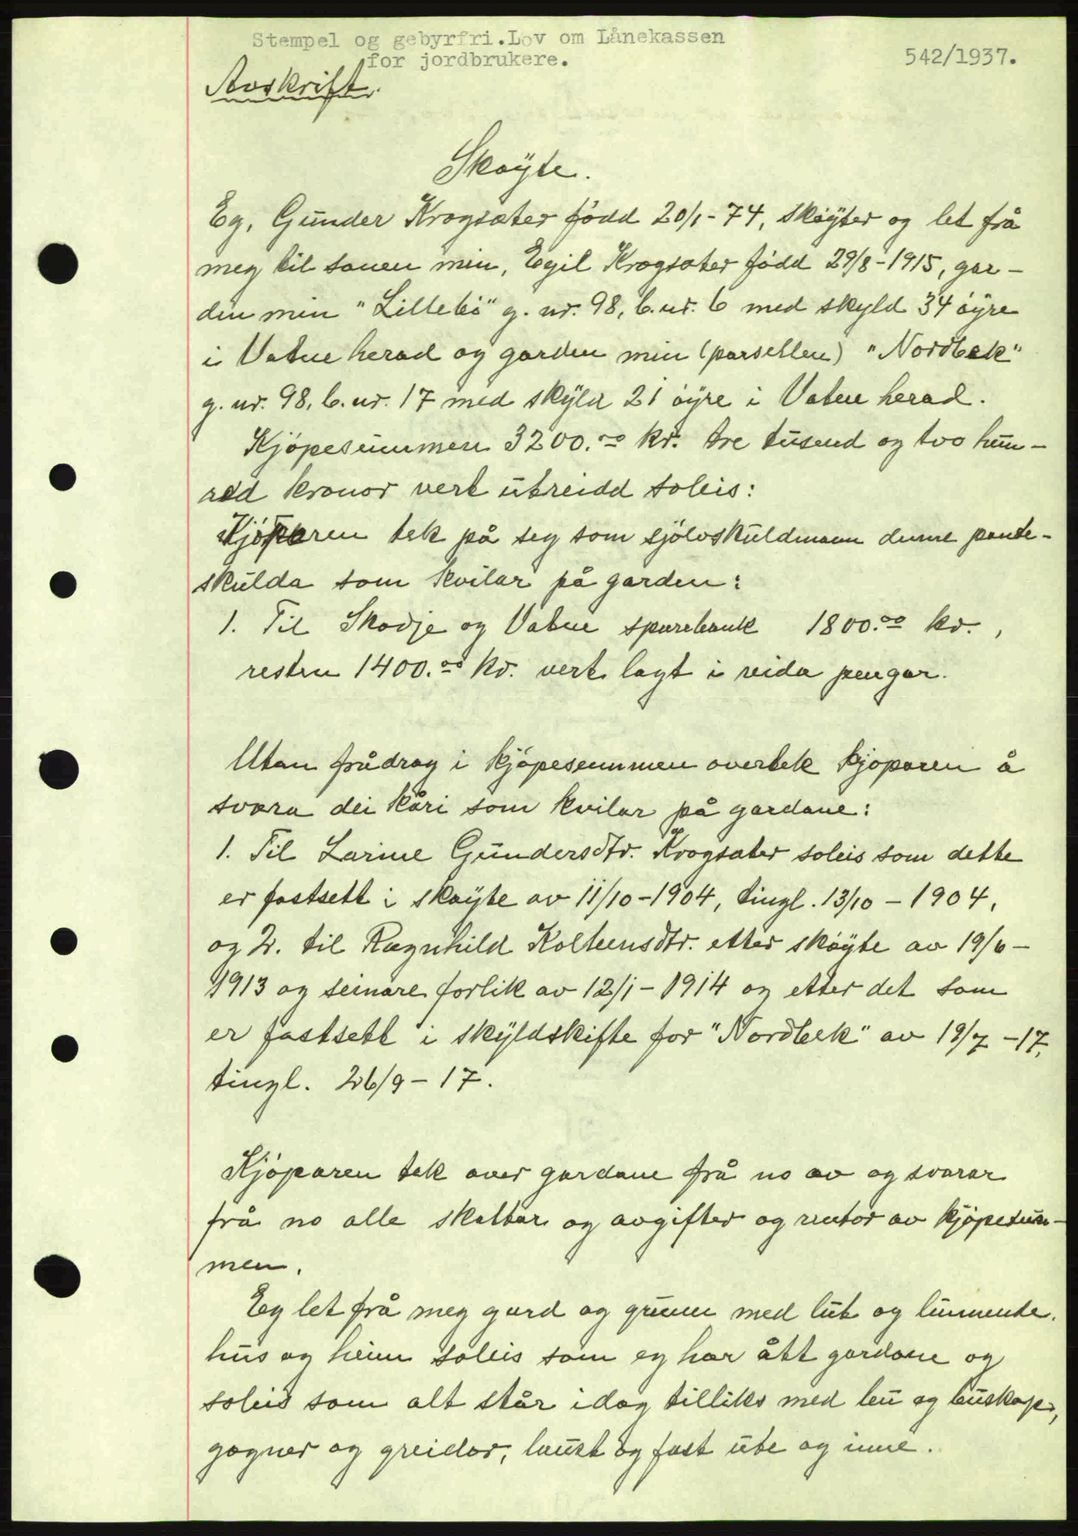 Stempel og gebyrfri.Lov om Lånekassen
for jordbrukere.
542/1937.
Avskrift.
Skøyte.
Eg, Gunder Krogsæter fødd 20/1-74, skøyter og let frå
meg til sonen min, Egil Krogsæter fødd 29/8-1915, gar-
din min "Lillebö" g. nr. 98, b.nr. 6 med skyld 34 øyre
i Vatne herad og garden min (parsellen) "Nordbek"
g. nr. 98, b. nr. 17 med skyld 21 øyre i Vatne herad.
Kjøpesummen 3200.00 kr. tre tusend og two hun-
red kronor vert utreidd soleis:
Kjøparen tek på seg som sjölvskuldmann denne pante-
skulda som kvilar på garden:
1. Til Skodje og Vatne sparebank 1800.00 kr.,
resten 1400.00 kr. vert lagt i reida pengar.
Utan frådrag i kjøpesummen overtek kjøparen å
svara dei kåri som kvilar på gardane:
1. Til Larine Gundersdtr. Krogsæter soleis som dette
er fastsett i skøyte av 11/10-1904, tingl. 13/10-1904,
og 2. til Ragnhild Kolbeinsdtr. etter skøyte av 19/6-
1913 og seinare forlik av 12/1-1914 og etter det som
er fastsett i skyldskifte for "Nordbek" av 19/7-17,
tingl. 26/9-17.
Kjøparen tek over gardane frå no av og svarar
frå no alle skattar og avgifter og rentor av kjøpesum-
men.
Eg let frå meg gard og grunn med lut og lunnende.
hus og heim soleis som eg har ått gardane og
soleis som alt står idag tilliks med bu og buskap,
gogner og greidor, laust og fast ute og inne.